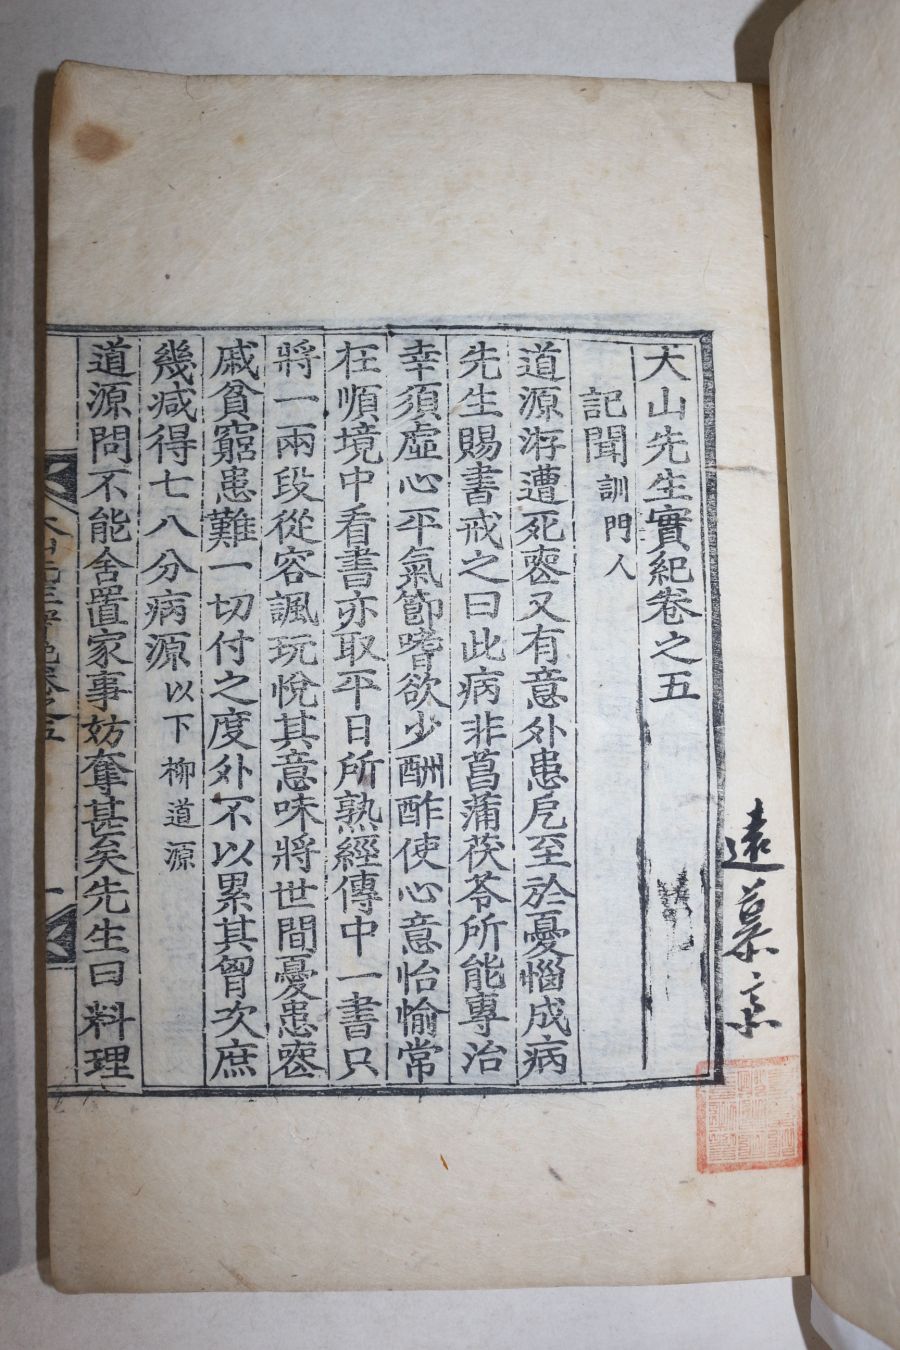 大山先生實紀卷之五
記聞 訓門人
道源洊遭死喪又有意外患戹至於憂惱成病
先生賜書戒之曰此病非菖蒲茯苓所能專治
幸須虛心平氣節嗜欲少酬酢使心意怡愉常
在順境中看書亦取平日所熟經傳中一書只
將一兩段從容諷玩悅其意味將世間憂患喪
戚貧窮患難一切付之度外不以累其胷次庶
幾減得七八分病源 以下柳道源
道源問不能舍置家事妨奪甚矣先生曰料理
遠慕亭